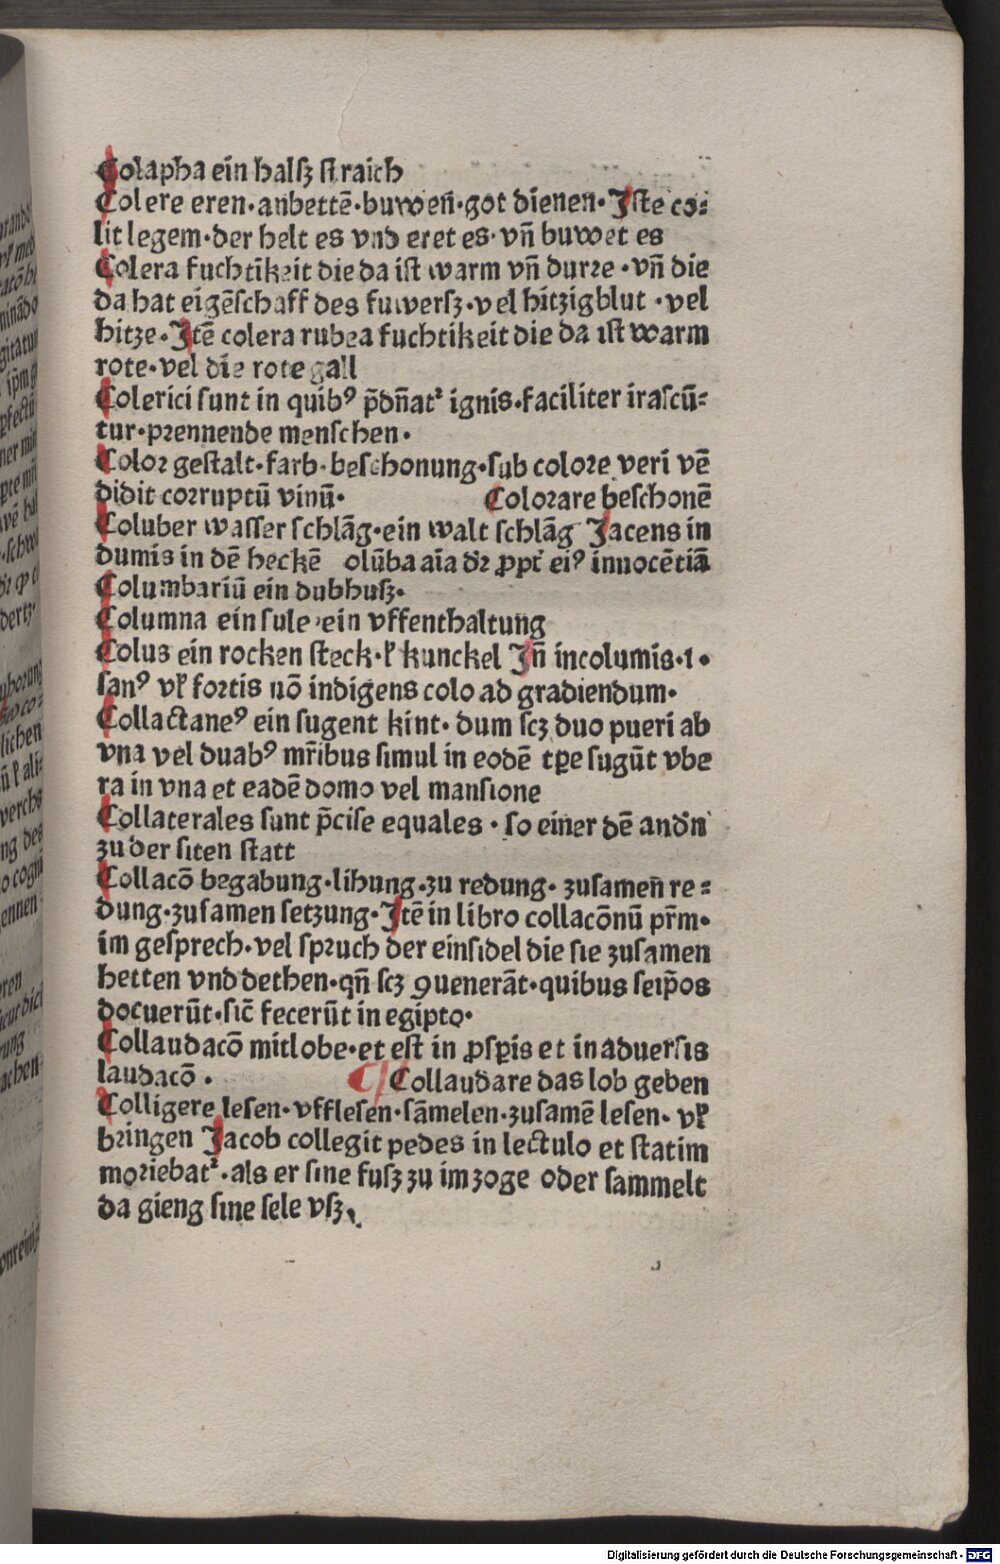 Colapha ein halſz ſtraich
Colere eren·anbettē·buwen̄·got dienen·Iſte co⸗
lit legem·der helt es vnd eret es·vn̄ buwet es
Colera fuchtikeit die da iſt warm vn̄ durꝛe·vn̄ die
da hat eigēſchaff des fuwerſz·vel hitzigblut·vel
hitze·Itē colera rubea fuchtikeit die da ıſt warm
rote·vel die rote gall
Colerici ſunt in quibꝰ p̄dn̄atᷣ ignis·faciliter iraſcū⸗
tur·pꝛennende menſchen·
Coloꝛ geſtalt·farb·beſchonung·ſub coloꝛe veri vē
didit coꝛruptū vinū· Coloꝛare beſchonē
Coluber waſſer ſchlāg·ein walt ſchlāg Iacens in
dumis in dē heckē olūba aīa dꝛ̄ ꝓpt̄ eiꝰ innocētiā
Columbariū ein dubhuſz·
Columna ein ſule·ein vffenthaltung
Colus ein rocken ſteck·ꝉ kunckel In̄ incolumis·1·
ſanꝰ vꝉ foꝛtis nō indigens colo ad gradiendum·
Collactaneꝰ ein ſugent kint·dum ſcꝫ duo pueri ab
vna vel duabꝰ mr̄ibus ſimul in eodē tꝑe ſugūt vbe
ra in vna et eadē domo vel manſione
Collaterales ſunt p̄ciſe equales·ſo einer dē andn̄
zu der ſiten ſtatt
Collacō begabung·lihung·zu redung·zuſamen̄ re⸗
dung·zuſamen ſetzung·Itē in libro collacōnū pr̄m·
im geſprech·vel ſpꝛuch der einſidel die ſie zuſamen
hetten vnd dethen·qn̄ ſcꝫ ꝯuenerāt·quibus ſeip̄os
docuerūt·ſic̄ fecerūt in egipto·
Collaudacō mitlobe·et eſt in ꝓſꝑis et in aduerſis
laudacō· ¶ Collaudare das lob geben
Colligere leſen·vffleſen·ſāmelen·zuſamē leſen·vꝉ
bꝛingen Iacob collegit pedes in lectulo et ſtatim
moꝛiebatᷣ·als er ſine fuſz zu im zoge oder ſammelt
da gieng ſine ſele vſz
Digitalisierung gefördert durch die Deutsche Forschungsgemeinschaft - DFG